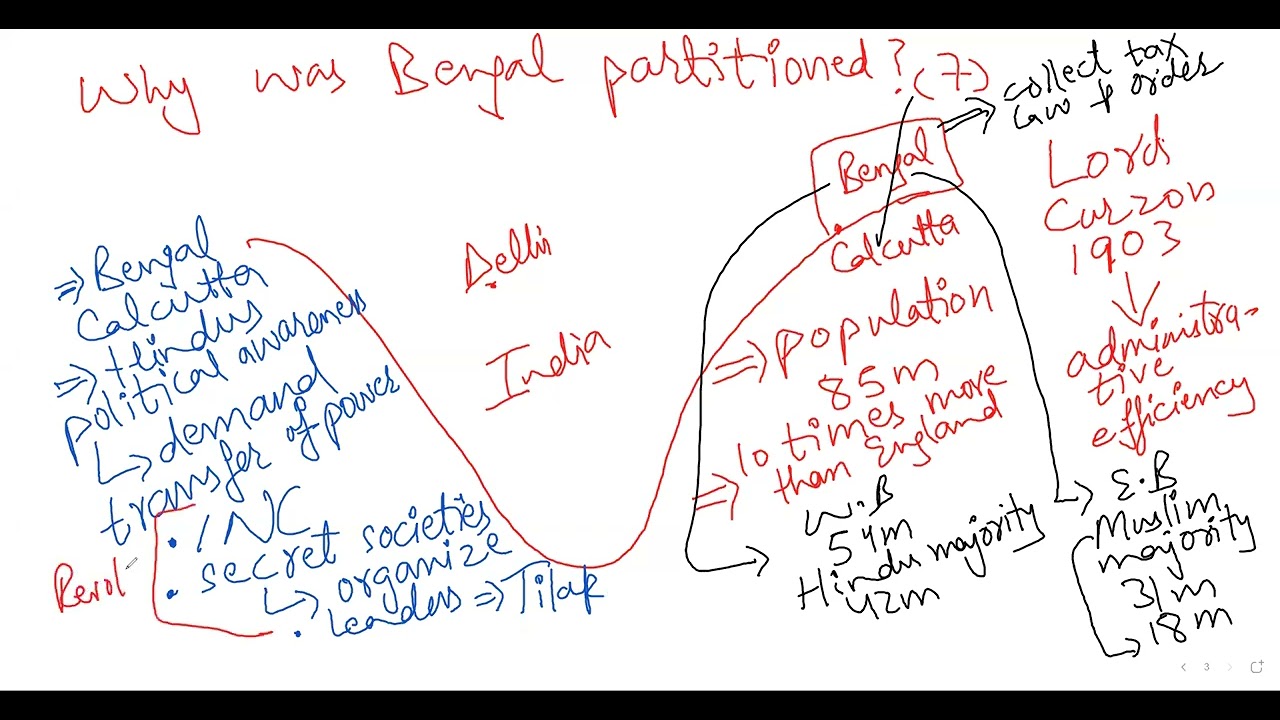 Why was Bengal partitioned? (7)
=> Bengal
Calcutta
=> Hindus
political awareness
↳ demand
transfer of power
• INC
• secret societies
↳ organize
• leaders => Tilak
Revol
Delhi
India
Bengal
Calcutta
=> population
85m
=> 10 times more
than England
W.B
54m
Hindu majority
42m
=> collect tax
law & order
Lord
Curzon
1903
administra-
tive
efficiency
E.B
Muslim
majority
31m
18m
3